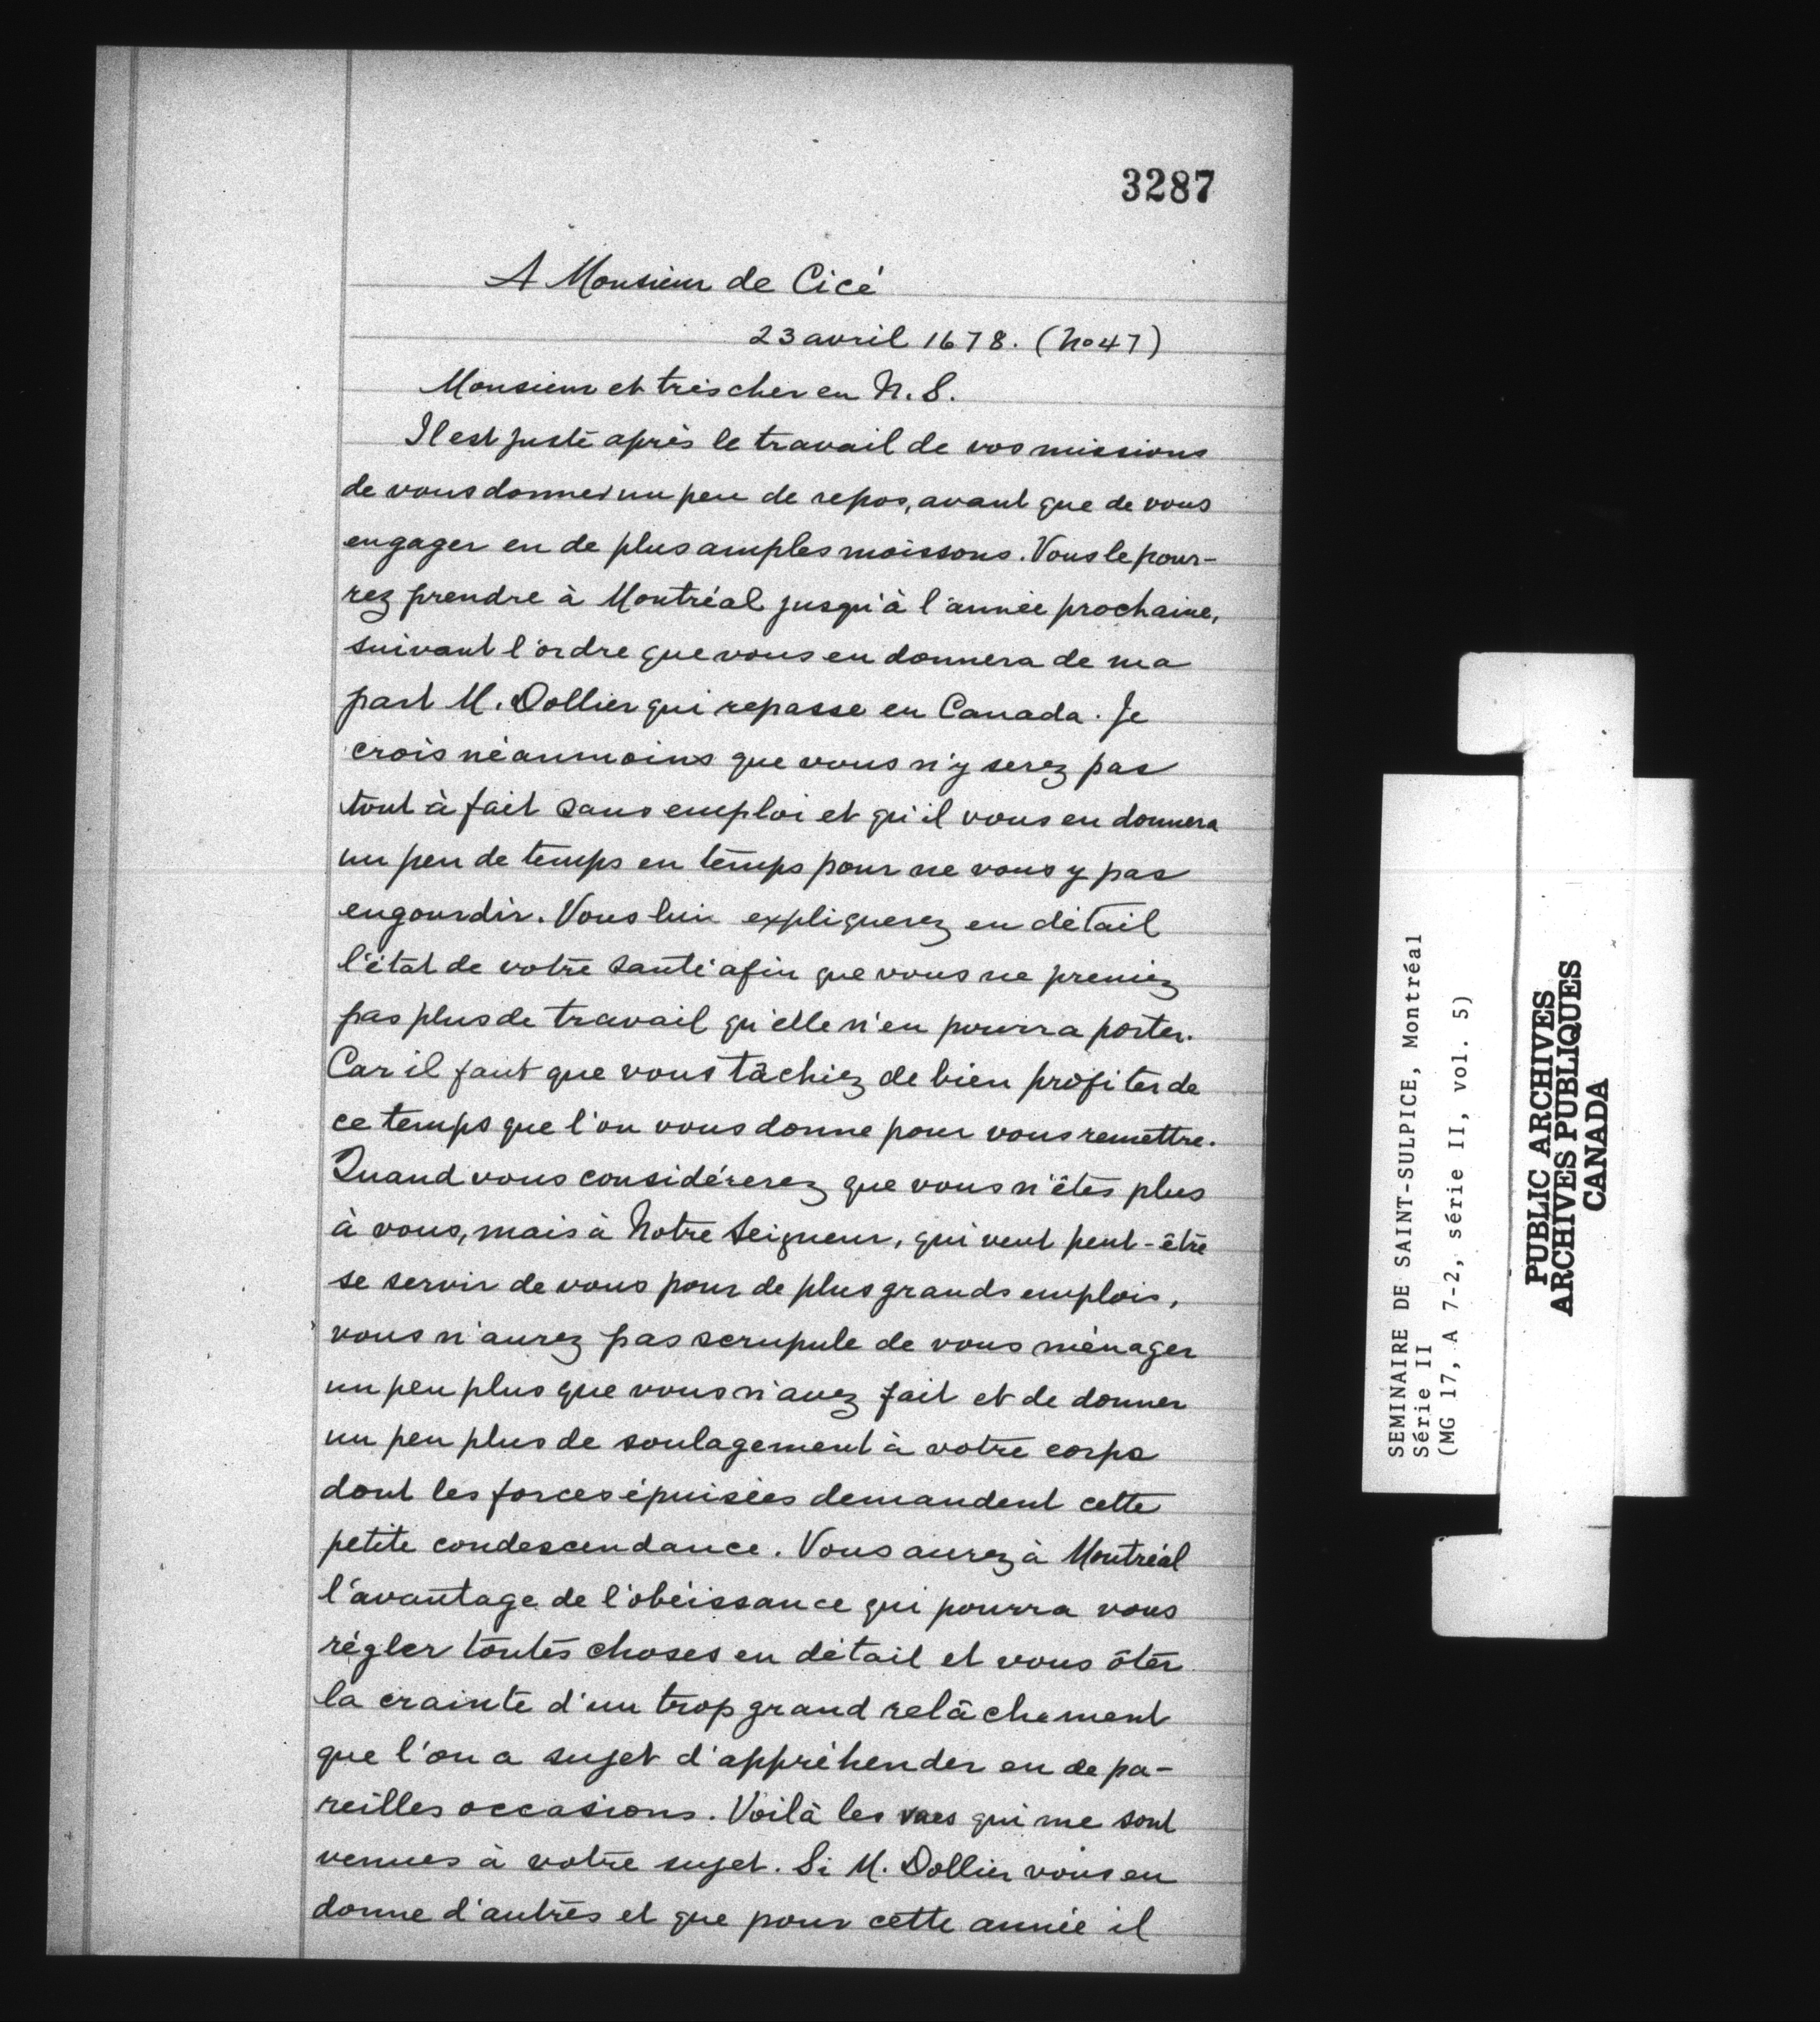 3287
A Monsieur de Cicé
23 avril 1678. (No 47)
Monsieur et très cher en N. S.
Il est juste après le travail de vos missions
de vous donner un peu de repos, avant que de vous
engager en de plus amples moissons. Vous le pour-
rez prendre à Montréal jusqu'à l'année prochaine,
suivant l'ordre que vous en donnera de ma
part M. Dollier qui repasse en Canada. Je
crois néanmoins que vous n'y serez pas
tout à fait sans emploi et qu'il vous en donnera
un peu de temps en temps pour ne vous y pas
engourdir. Vous lui expliquerez en détail
l'état de votre santé afin que vous ne preniez
pas plus de travail qu'elle n'en pourra porter.
Car il faut que vous tâchiez de bien profiter de
ce temps que l'on vous donne pour vous remettre.
Quand vous considérerez que vous n'êtes plus
à vous, mais à Notre Seigneur, qui veut peut-être
se servir de vous pour de plus grands emplois,
vous n'aurez pas scrupule de vous ménager
un peu plus que vous n'avez fait et de donner
un peu plus de soulagement à votre corps
dont les forces épuisées demandent cette
petite condescendance. Vous aurez à Montréal
l'avantage de l'obéissance qui pourra vous
régler toutes choses en détail et vous ôter
la crainte d'un trop grand relâchement
que l'on a sujet d'appréhender en de pa-
reilles occasions. Voilà les vues qui me sont
venues à votre sujet. Si M. Dollier vous en
donne d'autres et que pour cette année il
SEMINAIRE DE SAINT-SULPICE, Montréal
Série II
(MG 17, A 7-2, série II, vol. 5)
PUBLIC ARCHIVES
ARCHIVES PUBLIQUES
CANADA